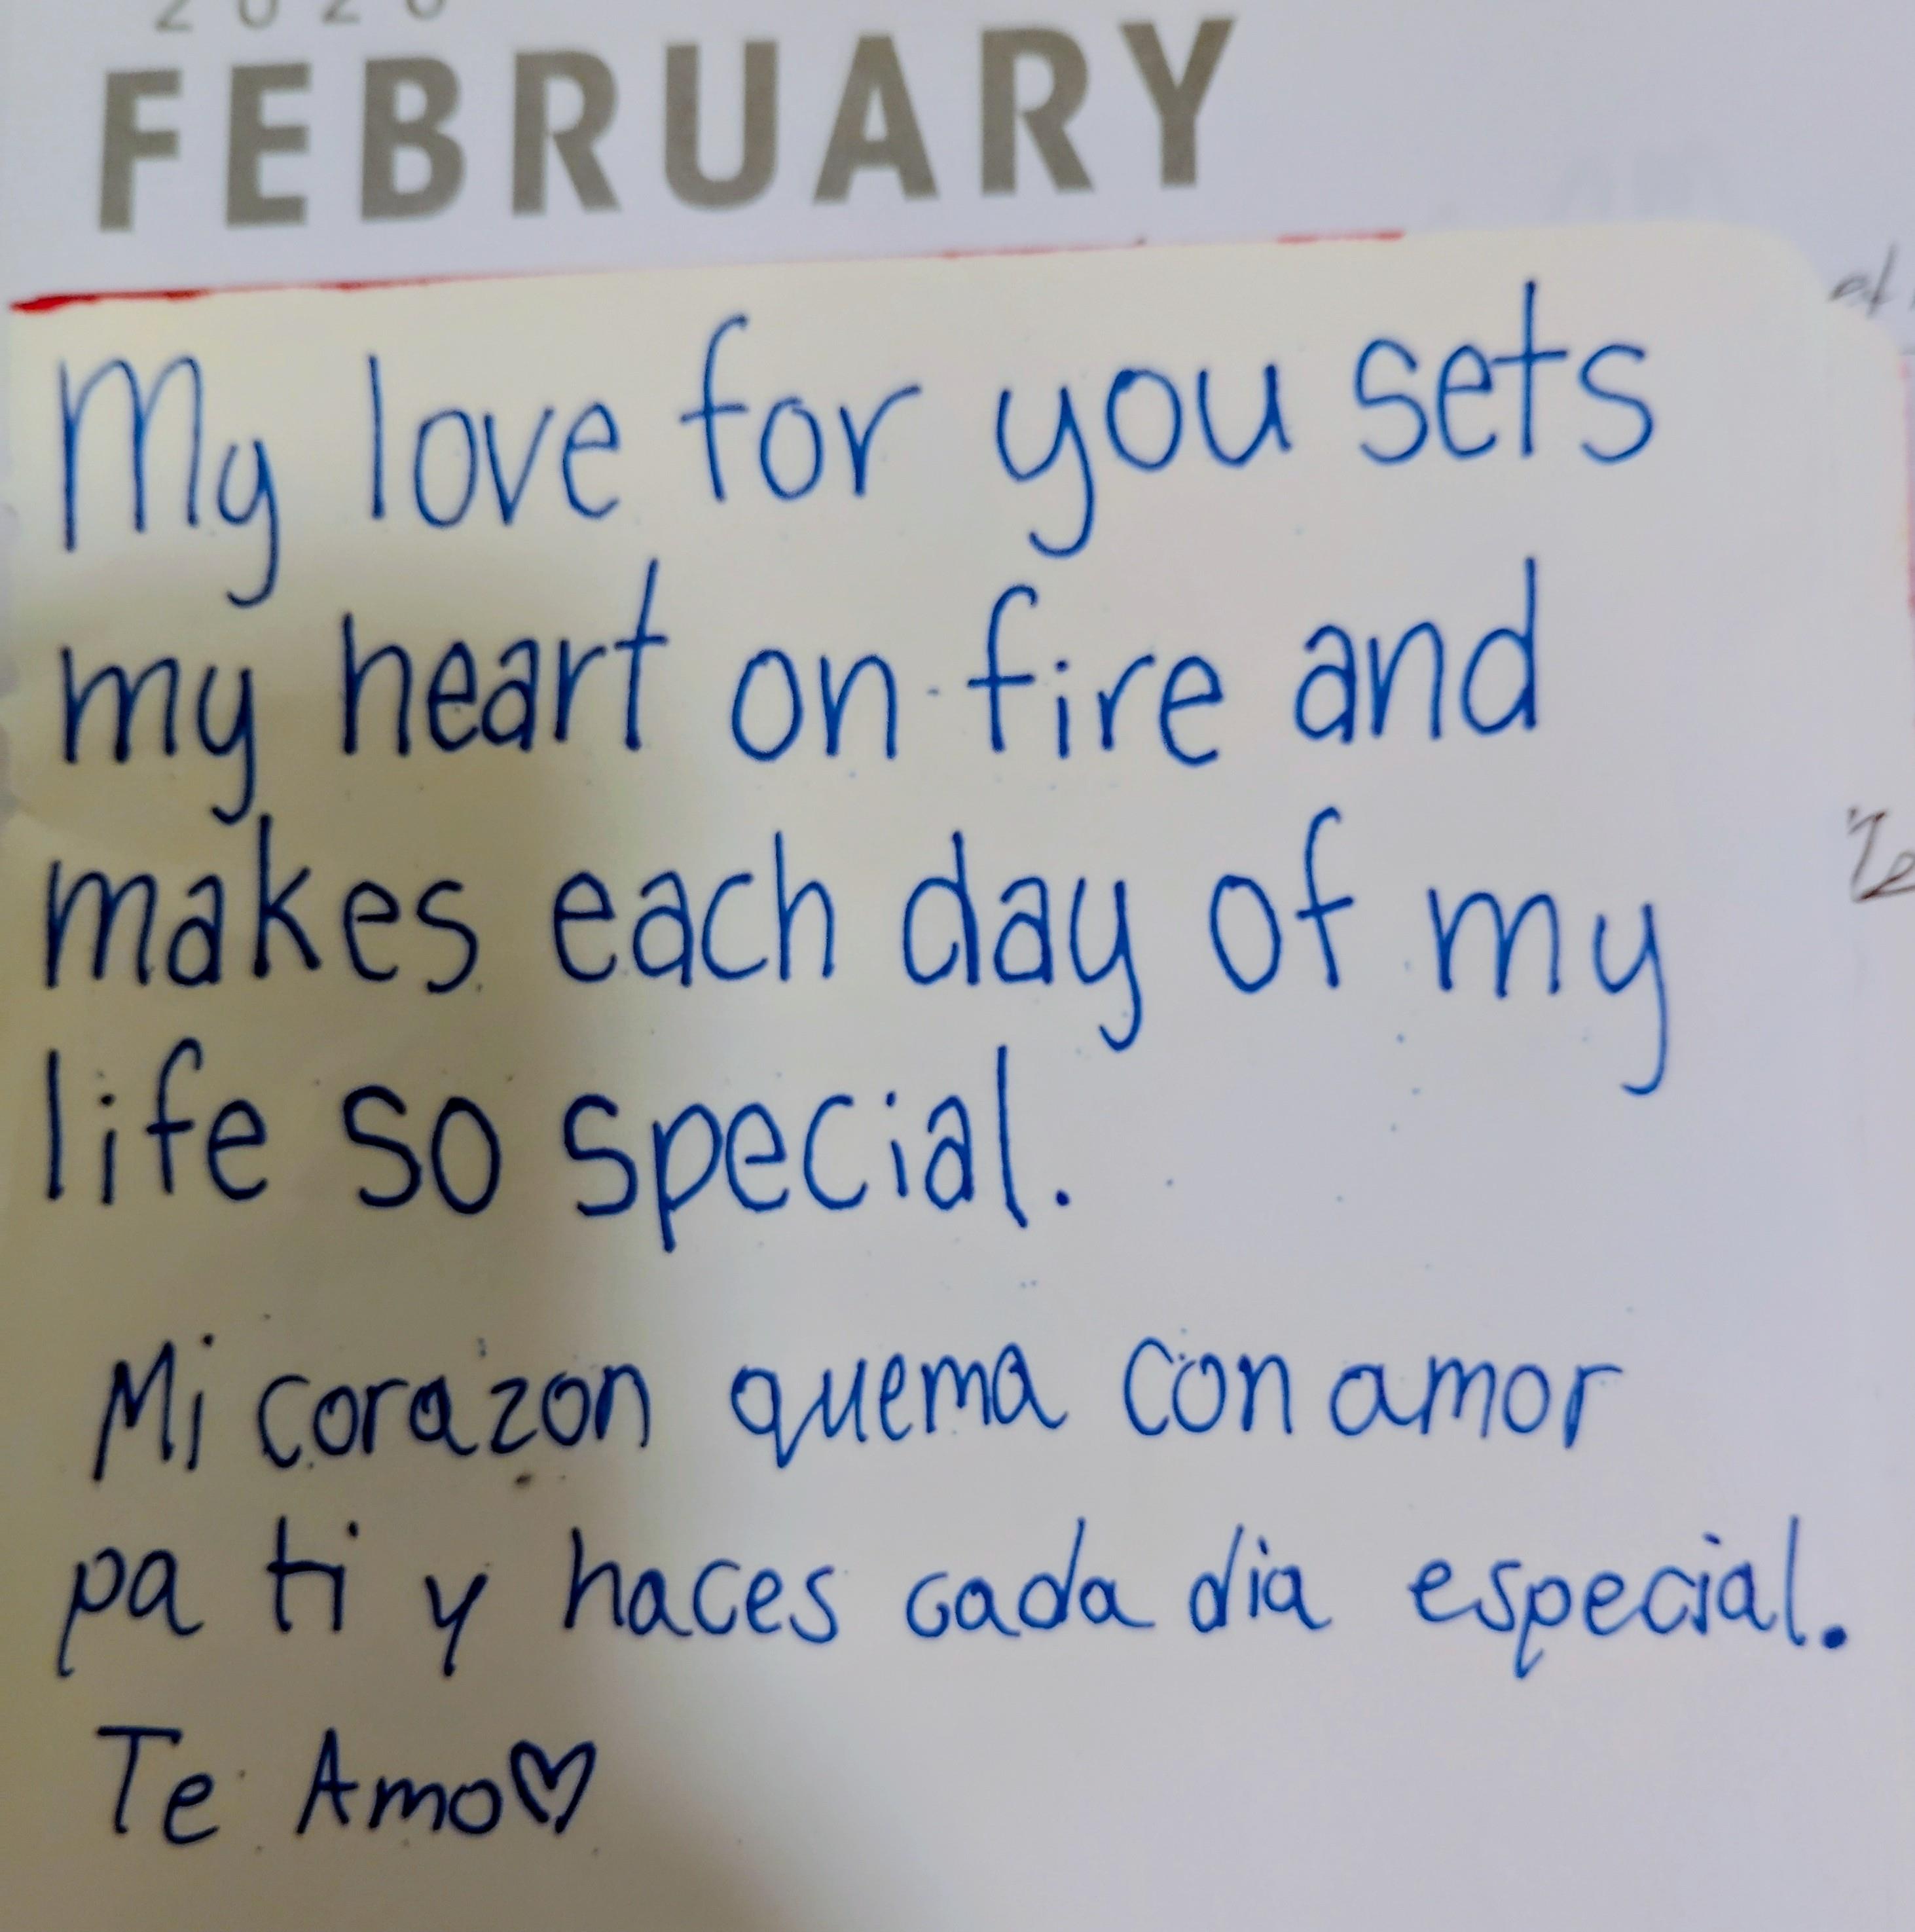 FEBRUARY
My love for you sets
my heart on fire and
makes each day of my
life so special.
Mi corazon quema con amor
pa ti y haces cada dia especial.
Te Amo♡